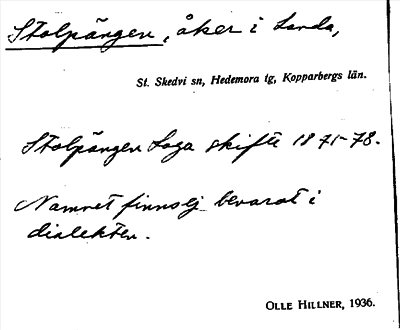 Stolpängen, åker i Landa,
St. Skedvi sn, Hedemora tg, Kopparbergs län.
Stolpängen Laga skifte 1871-78.
Namnet finns ej bevarat i
dialekten.
OLLE HILLNER, 1936.